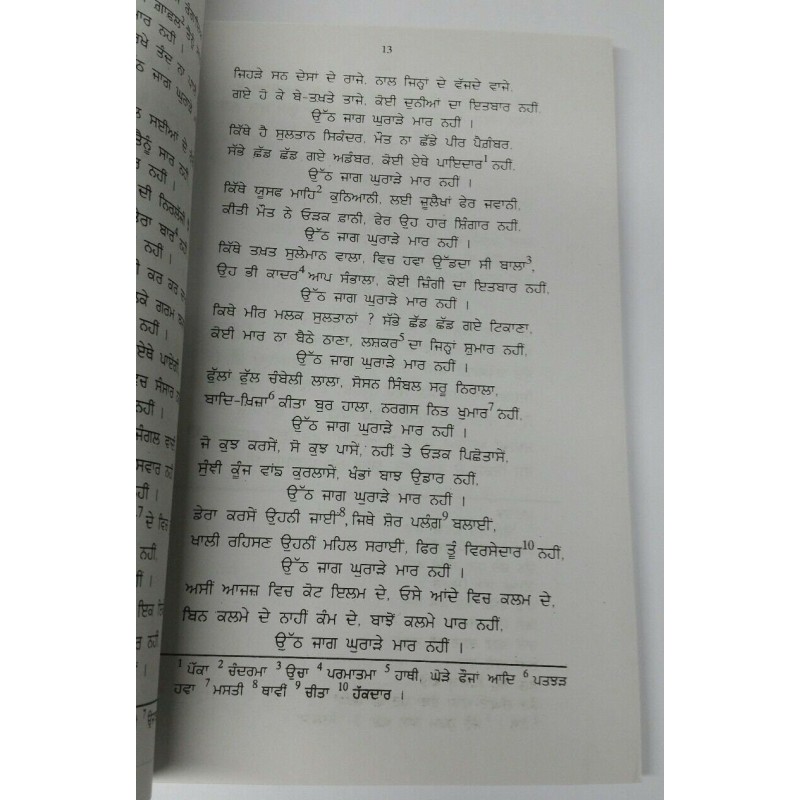 13
ਜਿਹੜੇ ਸਨ ਦੇਸਾ ਦੇ ਰਾਜੇ, ਨਾਲ ਜਿਨ੍ਹਾਂ ਦੇ ਵੱਜਦੇ ਵਾਜੇ,
ਗਏ ਹੋ ਕੇ ਬੇ-ਤਖ਼ਤੇ ਤਾਜੇ, ਕੋਈ ਦੁਨੀਆ ਦਾ ਇਤਬਾਰ ਨਹੀਂ,
ਉੱਠ ਜਾਗ ਘੁਰਾੜੇ ਮਾਰ ਨਹੀਂ ।
ਕਿੱਥੇ ਹੈ ਸੁਲਤਾਨ ਸਿਕੰਦਰ, ਮੌਤ ਨਾ ਛੱਡੇ ਪੀਰ ਪੈਗ਼ੰਬਰ,
ਸੱਭੇ ਛੱਡ ਛੱਡ ਗਏ ਅਡੰਬਰ, ਕੋਈ ਏਥੇ ਪਾਇਦਾਰ¹ ਨਹੀਂ,
ਉੱਠ ਜਾਗ ਘੁਰਾੜੇ ਮਾਰ ਨਹੀਂ ।
ਕਿੱਥੇ ਯੂਸਫ ਮਾਹਿ² ਕੁਨਿਆਨੀ, ਲਈ ਜ਼ੁਲੈਖਾਂ ਫੇਰ ਜਵਾਨੀ,
ਕੀਤੀ ਮੌਤ ਨੇ ਓੜਕ ਫ਼ਾਨੀ, ਫੇਰ ਉਹ ਹਾਰ ਸ਼ਿੰਗਾਰ ਨਹੀਂ,
ਉੱਠ ਜਾਗ ਘੁਰਾੜੇ ਮਾਰ ਨਹੀਂ ।
ਕਿੱਥੇ ਤਖ਼ਤ ਸੁਲੇਮਾਨ ਵਾਲਾ, ਵਿਚ ਹਵਾ ਉੱਡਦਾ ਸੀ ਬਾਲਾ³,
ਉਹ ਭੀ ਕਾਦਰ⁴ ਆਪ ਸੰਭਾਲਾ, ਕੋਈ ਜ਼ਿੰਗੀ ਦਾ ਇਤਬਾਰ ਨਹੀਂ,
ਉੱਠ ਜਾਗ ਘੁਰਾੜੇ ਮਾਰ ਨਹੀਂ ।
ਕਿਥੇ ਮੀਰ ਮਲਕ ਸੁਲਤਾਨਾਂ ? ਸੱਭੇ ਛੱਡ ਛੱਡ ਗਏ ਟਿਕਾਣਾ,
ਕੋਈ ਮਾਰ ਨਾ ਬੈਠੇ ਠਾਣਾ, ਲਸ਼ਕਰ⁵ ਦਾ ਜਿਨ੍ਹਾਂ ਸ਼ੁਮਾਰ ਨਹੀਂ,
ਉੱਠ ਜਾਗ ਘੁਰਾੜੇ ਮਾਰ ਨਹੀਂ ।
ਫੁੱਲਾਂ ਫੁੱਲ ਚੰਬੇਲੀ ਲਾਲਾ, ਸੋਸਨ ਸਿੰਬਲ ਸਰੂ ਨਿਰਾਲਾ,
ਬਾਦਿ-ਖ਼ਿਜ਼ਾਂ⁶ ਕੀਤਾ ਬੁਰ ਹਾਲਾ, ਨਰਗਸ ਨਿਤ ਖੁਮਾਰ⁷ ਨਹੀਂ,
ਉੱਠ ਜਾਗ ਘੁਰਾੜੇ ਮਾਰ ਨਹੀਂ ।
ਜੋ ਕੁਝ ਕਰਸੇਂ, ਸੋ ਕੁਝ ਪਾਸੇਂ, ਨਹੀਂ ਤੇ ਓੜਕ ਪਿਛੋਤਾਸੇਂ,
ਸੁੰਞੀ ਕੂੰਜ ਵਾਂਙ ਕੁਰਲਾਸੇਂ, ਖੰਭਾਂ ਬਾਝ ਉਡਾਰ ਨਹੀਂ,
ਉੱਠ ਜਾਗ ਘੁਰਾੜੇ ਮਾਰ ਨਹੀਂ ।
ਡੇਰਾ ਕਰਸੇਂ ਉਹਨੀ ਜਾਈਂ⁸, ਜਿਥੇ ਸ਼ੇਰ ਪਲੰਗ⁹ ਬਲਾਈਂ,
ਖਾਲੀ ਰਹਿਸਣ ਉਹਨੀਂ ਮਹਿਲ ਸਰਾਈਂ, ਫਿਰ ਤੂੰ ਵਿਰਸੇਦਾਰ¹⁰ ਨਹੀਂ,
ਉੱਠ ਜਾਗ ਘੁਰਾੜੇ ਮਾਰ ਨਹੀਂ ।
ਅਸੀਂ ਆਜਜ਼ ਵਿਚ ਕੋਟ ਇਲਮ ਦੇ, ਓਸੇ ਆਂਦੇ ਵਿਚ ਕਲਮ ਦੇ,
ਬਿਨ ਕਲਮੇ ਦੇ ਨਾਹੀਂ ਕੰਮ ਦੇ, ਬਾਝੋਂ ਕਲਮੇ ਪਾਰ ਨਹੀਂ,
ਉੱਠ ਜਾਗ ਘੁਰਾੜੇ ਮਾਰ ਨਹੀਂ ।
¹ ਪੱਕਾ ² ਚੰਦਰਮਾ ³ ਉਚਾ ⁴ ਪਰਮਾਤਮਾ ⁵ ਹਾਥੀ, ਘੋੜੇ ਫੌਜਾਂ ਆਦਿ ⁶ ਪਤਝੜ
ਹਵਾ ⁷ ਮਸਤੀ ⁸ ਥਾਵੀਂ ⁹ ਚੀਤਾ ¹⁰ ਹੱਕਦਾਰ ।